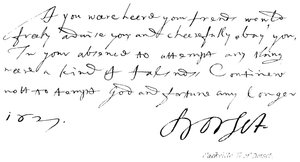 If you ware heere your frends would
freely advise you and cheerefully obey you.
In your absence to attempt any thing
ware a kind of falsnes Continew
nott to tempt God and fortune any longer
1627. Dorset